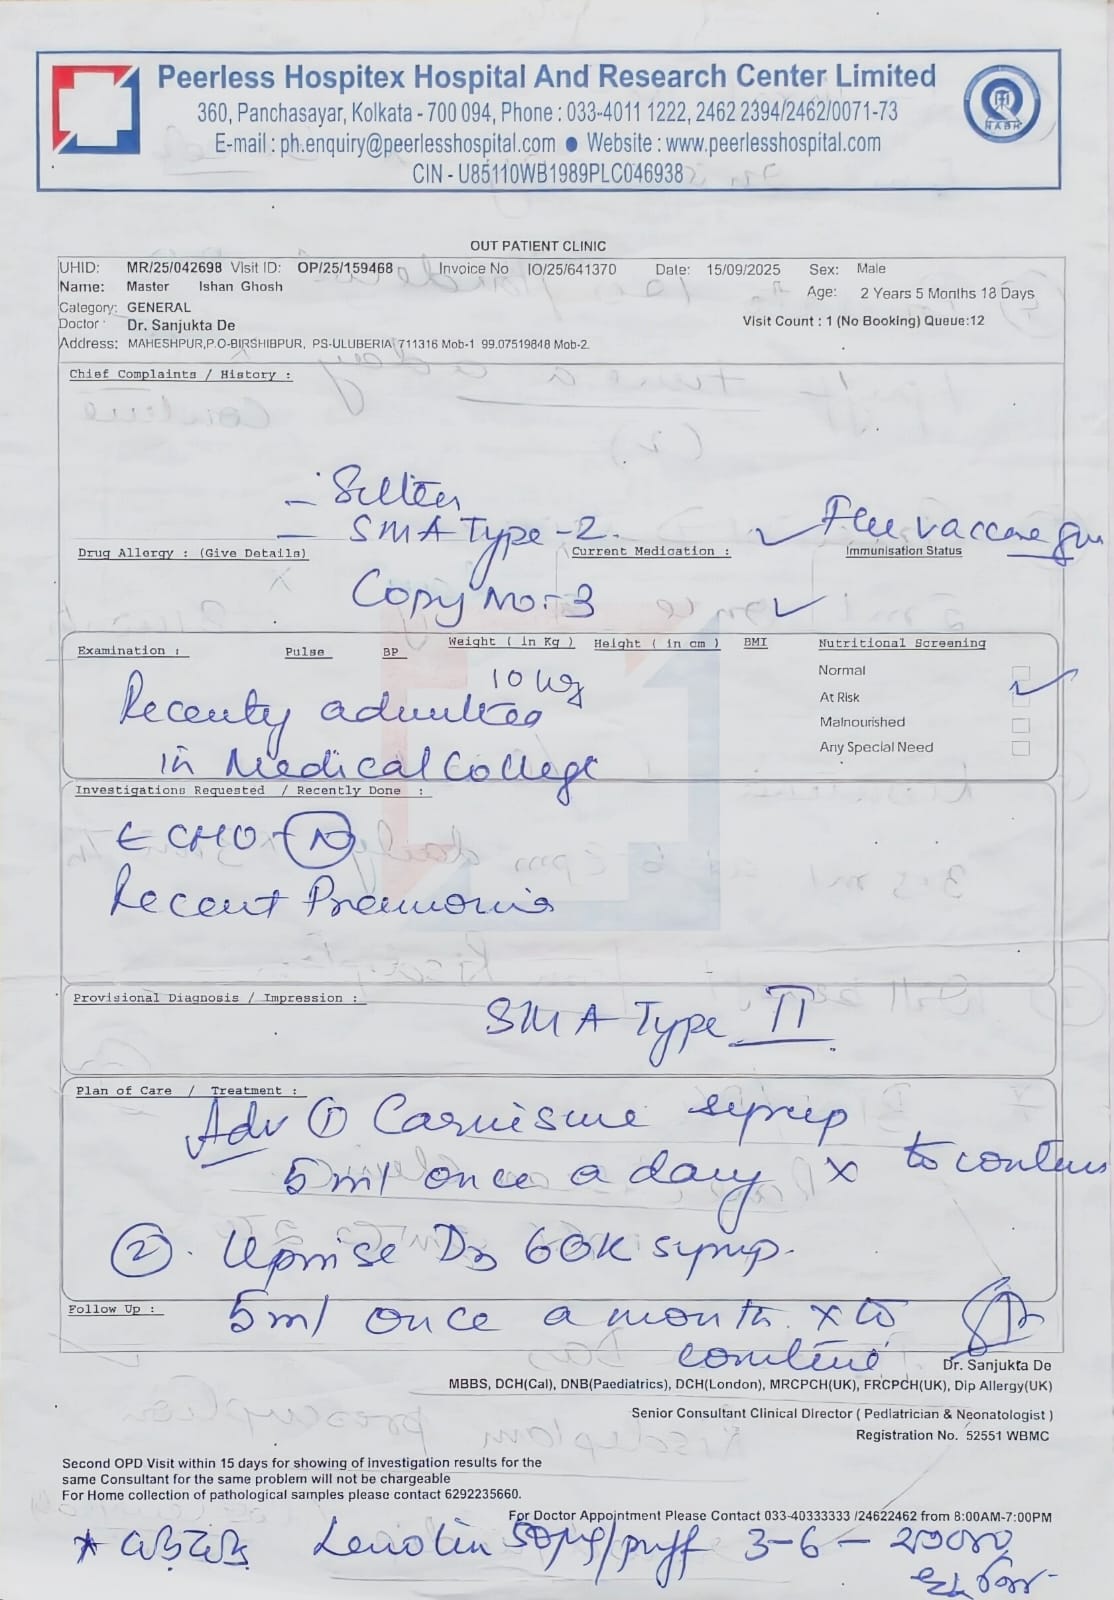 Peerless Hospitex Hospital And Research Center Limited
360, Panchasayar, Kolkata - 700 094, Phone : 033-4011 1222, 2462 2394/2462/0071-73
E-mail : ph.enquiry@peerlesshospital.com ● Website : www.peerlesshospital.com
CIN - U85110WB1989PLC046938
NABH
OUT PATIENT CLINIC
UHID: MR/25/042698 Visit ID: OP/25/159468 Invoice No IO/25/641370 Date: 15/09/2025 Sex: Male
Name: Master Ishan Ghosh Age: 2 Years 5 Months 18 Days
Category: GENERAL
Doctor : Dr. Sanjukta De Visit Count : 1 (No Booking) Queue:12
Address: MAHESHPUR,P.O-BIRSHIBPUR, PS-ULUBERIA 711316 Mob-1 99.07519848 Mob-2.
Chief Complaints / History :
- SMA Type -2. Flu vaccine
Drug Allergy : (Give Details) Current Medication : Immunisation Status
Copy No:- 3
Examination : Pulse BP Weight ( in Kg ) Height ( in cm ) BMI Nutritional Screening
10 kg
Normal
At Risk
Malnourished
Any Special Need
Recently admitted
in Medical College
Investigations Requested / Recently Done :
ECHO - N
Recent Pneumonia
Provisional Diagnosis / Impression :
SMA Type II
Plan of Care / Treatment :
Adv ① Carnisure syrup
5 ml once a day x to continue
② Uprise D3 60K syrup.
Follow Up :
5ml once a month x to
continue
Dr. Sanjukta De
MBBS, DCH(Cal), DNB(Paediatrics), DCH(London), MRCPCH(UK), FRCPCH(UK), Dip Allergy(UK)
Senior Consultant Clinical Director ( Pediatrician & Neonatologist )
Registration No. 52551 WBMC
Second OPD Visit within 15 days for showing of investigation results for the
same Consultant for the same problem will not be chargeable
For Home collection of pathological samples please contact 6292235660.
For Doctor Appointment Please Contact 033-40333333 /24622462 from 8:00AM-7:00PM
50µg/puff 3-6 -